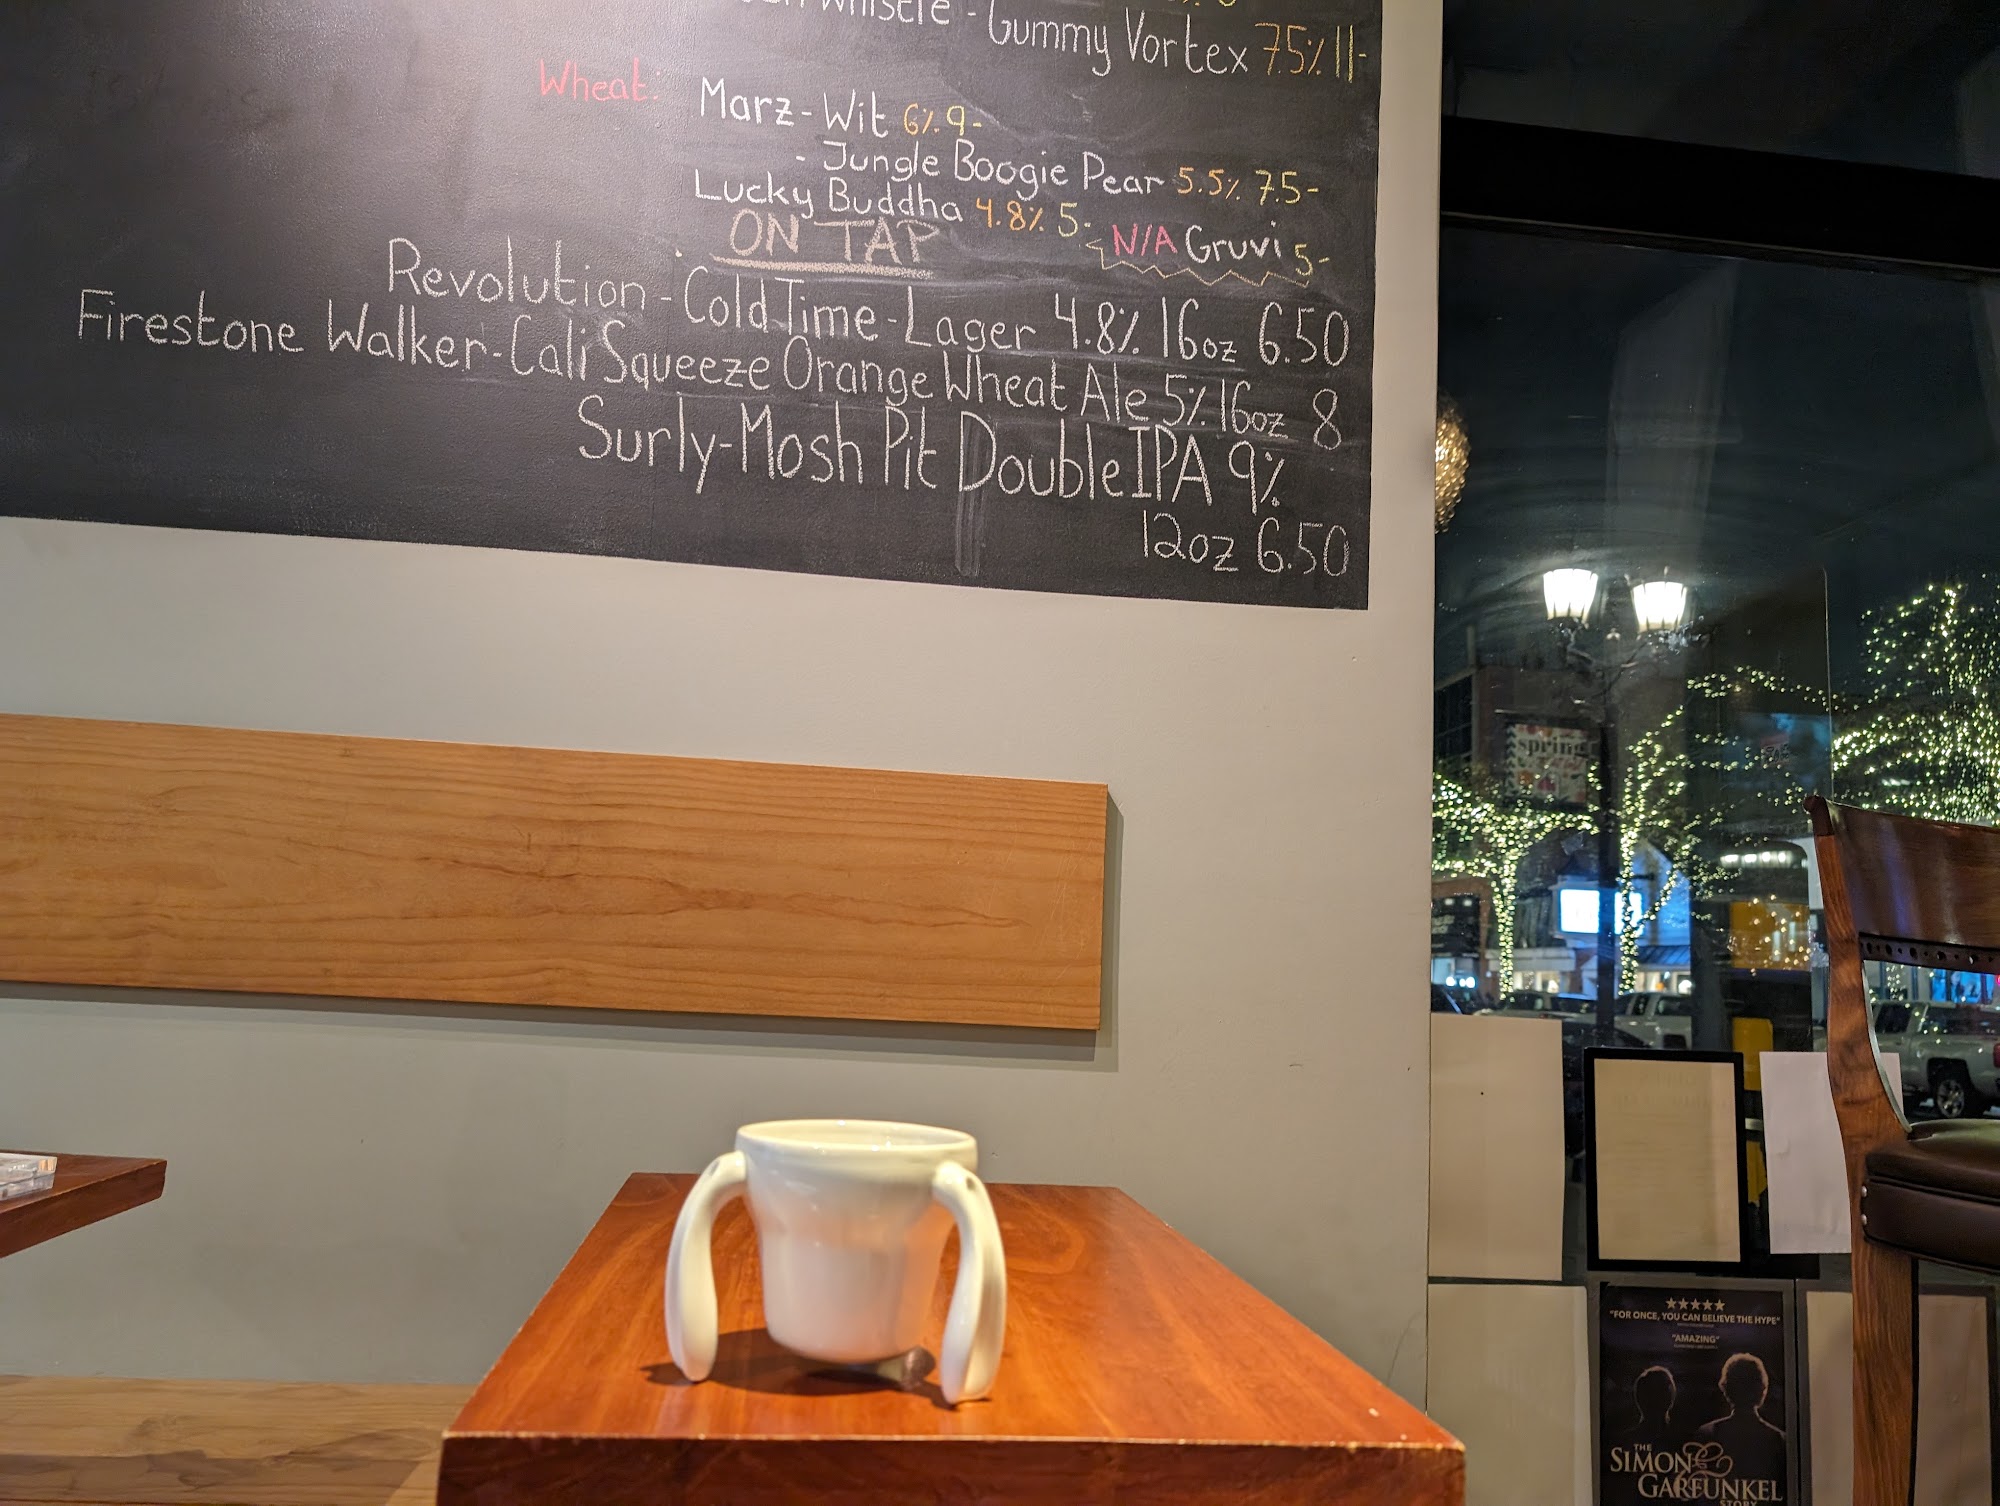 Whistle - Gummy Vortex 7.5% 11-
Wheat: Marz - Wit 6% 9-
- Jungle Boogie Pear 5.5% 7.5-
Lucky Buddha 4.8% 5-
ON TAP
N/A Gruvi 5-
Revolution - Cold Time - Lager 4.8% 16oz 6.50
Firestone Walker - Cali Squeeze Orange Wheat Ale 5% 16oz 8
Surly - Mosh Pit Double IPA 9%
12oz 6.50
spring
"FOR ONCE, YOU CAN BELIEVE THE HYPE"
"AMAZING"
THE
SIMON &
GARFUNKEL
STORY